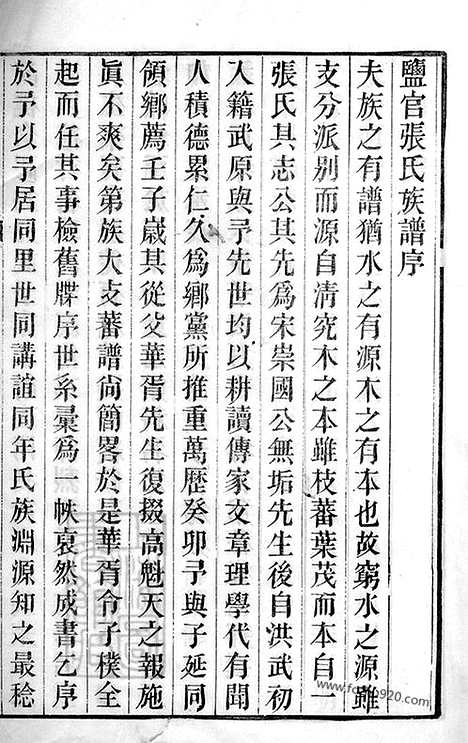 鹽官張氏族譜序
夫族之有譜猶水之有源木之有本也故窮水之源雖
支分派别而源自清究木之本雖枝蕃葉茂而本自一
張氏其志公其先爲宋崇國公無垢先生後自洪武初
入籍武原與予先世均以耕讀傳家文章理學代有聞
人積德累仁久爲鄉黨所推重萬歷癸卯予與子延同
領鄉薦壬子嵗其從父華胥先生復掇高魁天之報施
眞不爽矣第族大支蕃譜尙簡畧於是華胥令子樸全
起而任其事檢舊牒序世系彚爲一帙裒然成書乞序
於予以予居同里世同講誼同年氏族淵源知之最稔